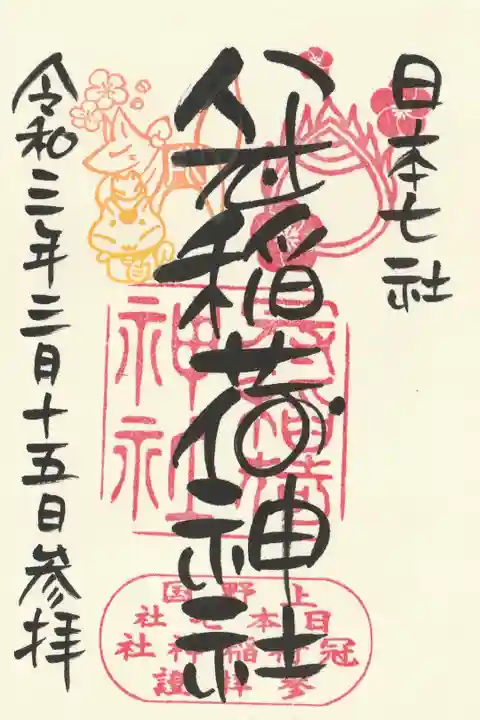 日本七社
稲荷神社
令和三年三月十五日参拝
上野国
日本七社
冠稲荷神社
参拝證